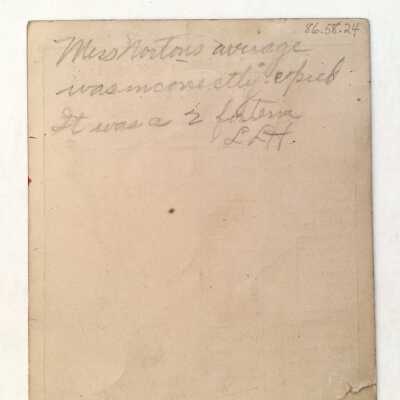 86.58.24
Miss Norton's average
was incorrectly copied
It was a 2 for term
L L H.